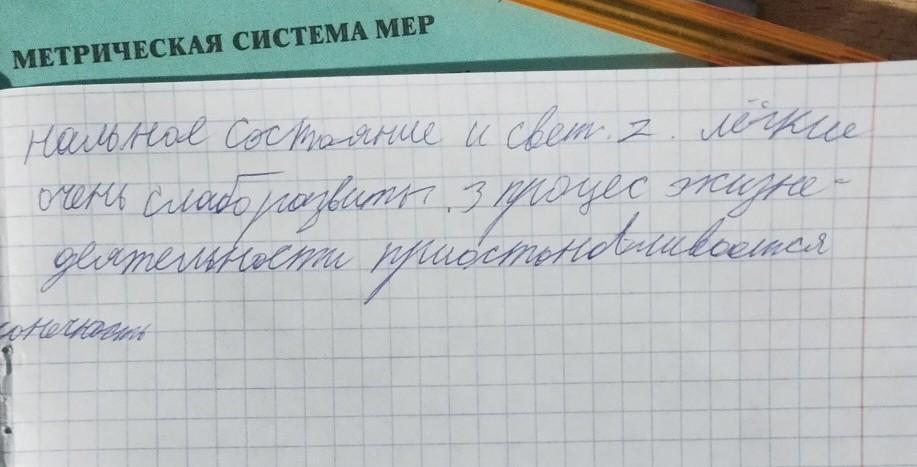 МЕТРИЧЕСКАЯ СИСТЕМА МЕР
нальное состояние и свет. 2. лёгкие
очень слабо развиты. 3 процес жизне-
деятельности приостановливается
конечность